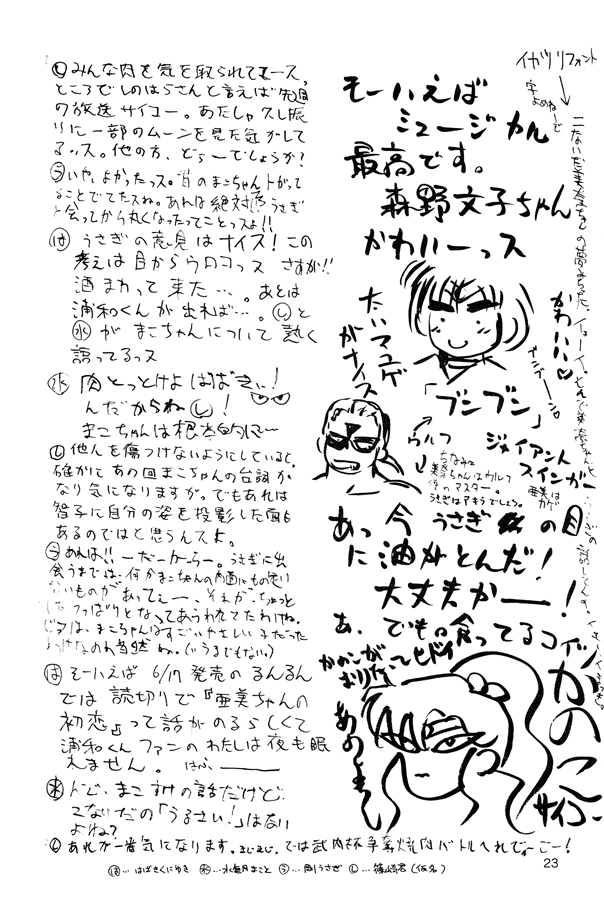 し みんな肉を気を取られてまース。
ところでしのはらさんと言えば先週
の放送サイコー。あたしゃ久し振
りに一部のムーンを見た気がして
るッス。他の方、どぅーでしょうか?
う いや、よかったっス。昔のまこちゃんトがって
ることでてたスね。あれは絶対うさぎ
と会ってから丸くなったってことっスよ!!
は うさぎの意見はナイス!この
考えは目からウロコっス さすが!!
酒まわって来た…。あとは
浦和くんが出れば…。しと
水がまこちゃんについて熱く
語ってるっス
水 肉とっとけよはばきぃ!
んだからねし!
まこちゃんは根本的に〜
し 他人を傷つけないようにしていると、
確かにあの回まこちゃんの台詞か
なり気になりますが。でもあれは
智子に自分の姿を投影した面も
あるのではと思うんスよ。
う あれは!!ーだーかーらー。うさぎに出
会うまでは、何かまこちゃんの内面にもの足り
ないものがあってぇー、それが、ちょっと
したつっぱりとなってあらわれてたわけね。
まこちゃんはすごいやさしい子だった
わけなのね当然ね。(いうまでもない)
は そーいえば 6/17 発売のるんるん
では 読切りで『亜美ちゃんの
初恋』って話がのるらしくて
浦和くんファンのわたしは夜も眠
れません。 はふー
水 まこすけの話だけど、
こないだの「うるさい!」はない
よね?
し あれが一番気になります。では武内杯争奪焼肉バトルへれでぃーごー!
は…はばきくにゆき 水…水無月まこと う…うさぎ し…篠崎君(仮名)
イガリリフォント
字よめねーで
そーいえば
ミュージカル
最高です。
森野文子ちゃん
かわいーっス
たいマユゲ
がナイス
かわいい♡
「ブンブン」
ウルフ
ジャイアント
スインガー
ちなみに
美奈ちゃんはウルフ
のマスター。
うさぎはアキラでしょう。
亜美は
カゲ
あっ今うさぎの目
に油がとんだ!
大丈夫かー!
あ、でもの食ってるコイツ
かのこが
おりなーヒドイ
あのまし
かのこ
サイコー
23